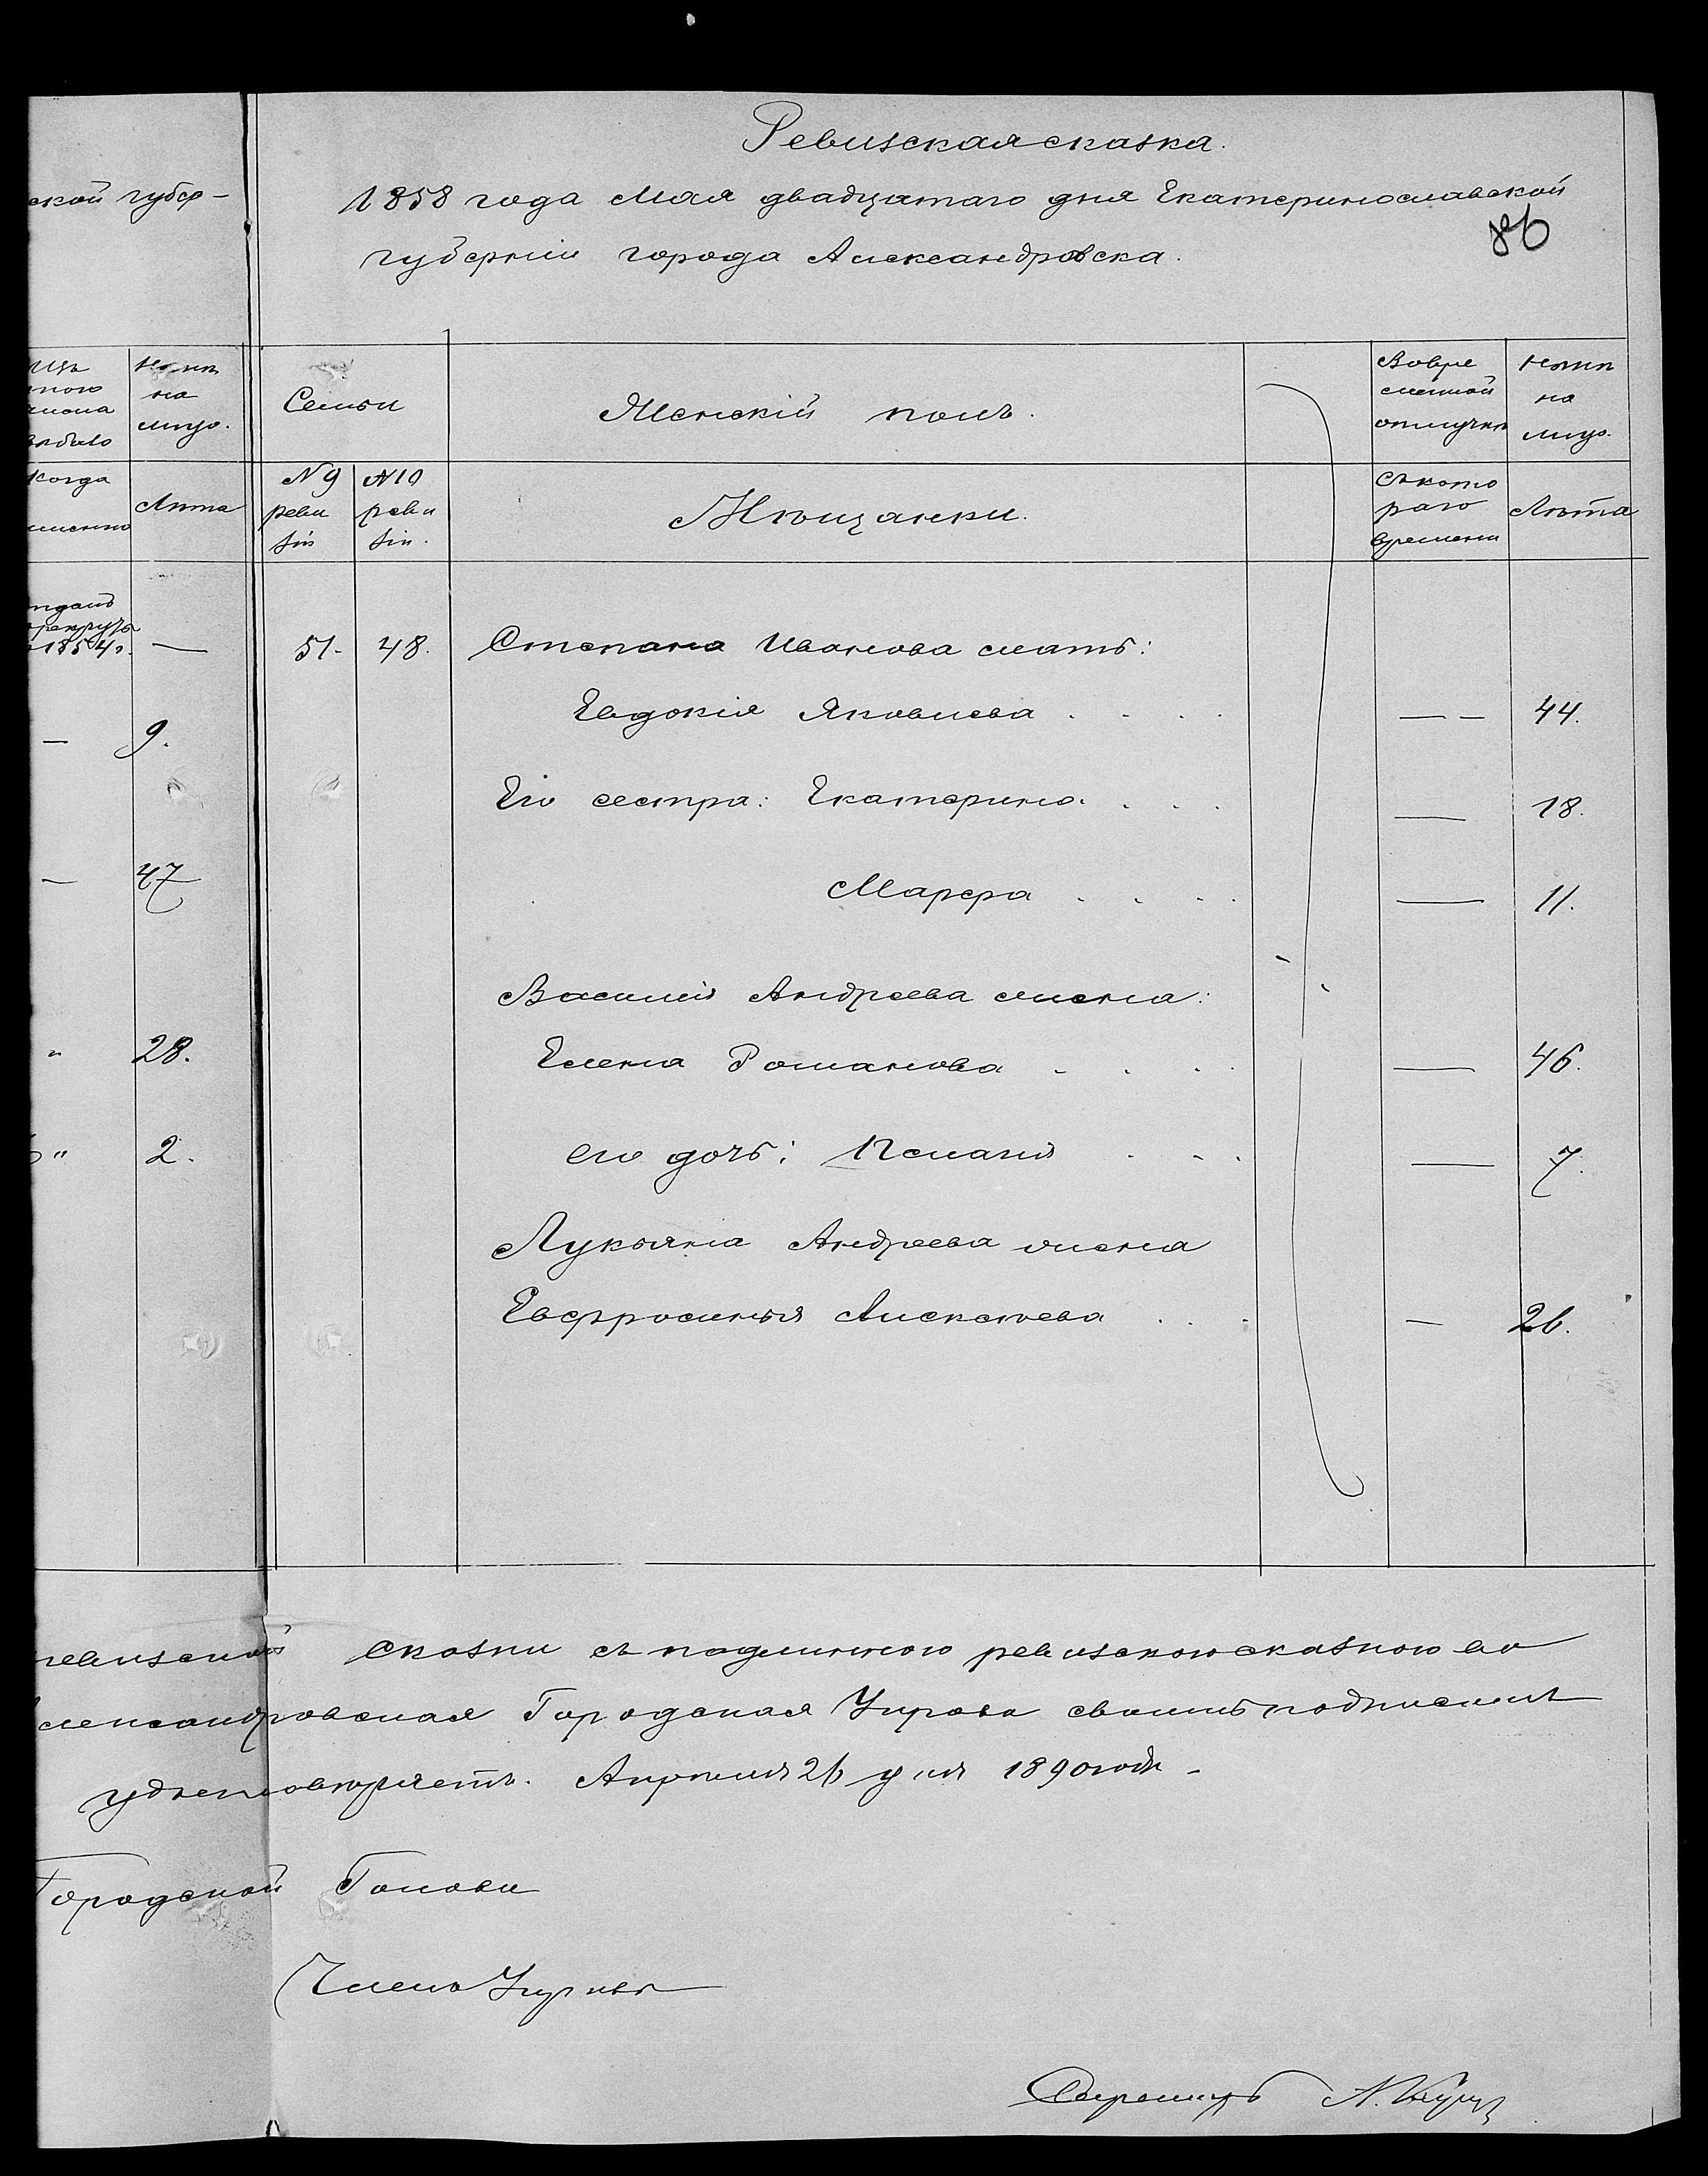 Ревизская сказка.
ской губер-
1858 года Мая двадцатаго дня Екатеринославской
86
губернии города Александровска.
Налицо
на
лицо.
Семьи
Женскій полъ.
Во вре
менной
отлучкѣ
Нынѣ
на
лицо.
Когда
именно
Лѣта
№ 9
реви
зіи
№ 10
реви
зіи.
Мѣщанки.
Съ кото
раго
времени
Лѣта
1854 г. —
51. 48. Степана Иванова мать:
Евдокія Яковлева . . . . — — 44.
— 9.
Его сестра: Екатерина . . . — 18.
— 47
Марфа . . . . — 11.
Василія Андреева жена:
" 28.
Елена Романова . . . . — 46.
" 2.
его дочь: . . . — 7.
Лукьяна Андреева жена
Евфросинья Алексѣева . . . — 26.
ревизской сказки съ подлинною ревизскою сказкою
Александровская Городская Управа своимъ подписомъ
удостовѣряетъ. Апрѣля 26 дня 1890 года.
Городской Голова
Членъ Управы
Секретарь